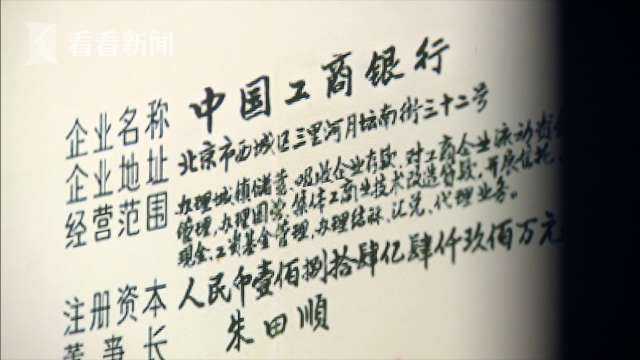 看看新闻
企业名称 中国工商银行
企业地址 北京市西城区三里河月坛南街三十二号
经营范围 办理城镇储蓄、吸收企业存款、对工商企业流动资金
管理、办理国营、集体工商业技术改造贷款、开展信托、
现金、工资基金管理、办理结算、汇兑、代理业务。
注册资本 人民币壹佰捌拾肆亿肆仟玖佰万元
董事长 朱田顺